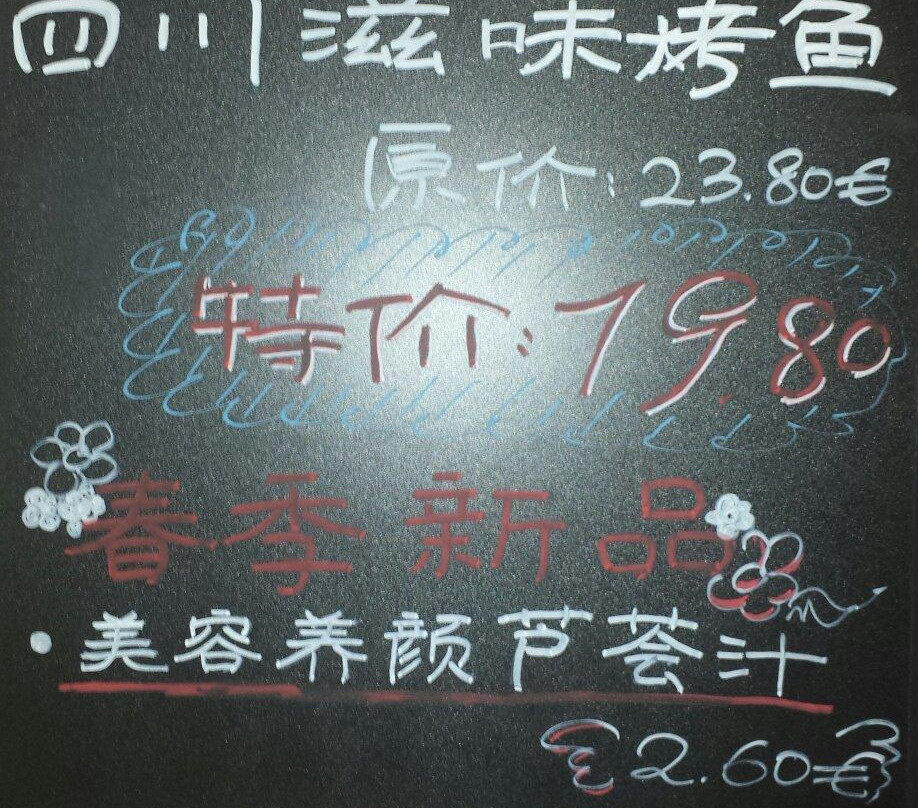 四川滋味烤鱼
原价:23.80€
特价:19.80
春季新品
·美容养颜芦荟汁
2.60€